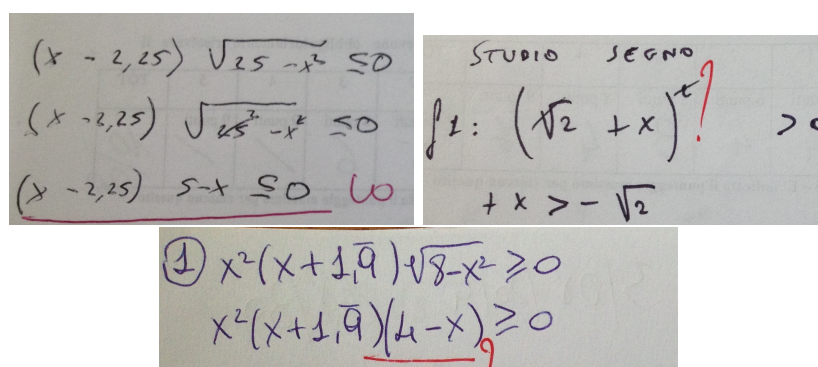 (x - 2,25) √25 - x² ≤0
(x - 2,25) √25² - x² ≤0
(x - 2,25) 5-x ≤0
STUDIO SEGNO
f1: (√2 + x)^t ? >0
+ x > - √2
① x²(x+1,9̅)·√8-x² ≥0
x²(x+1,9̅)(4-x) ≥0
?